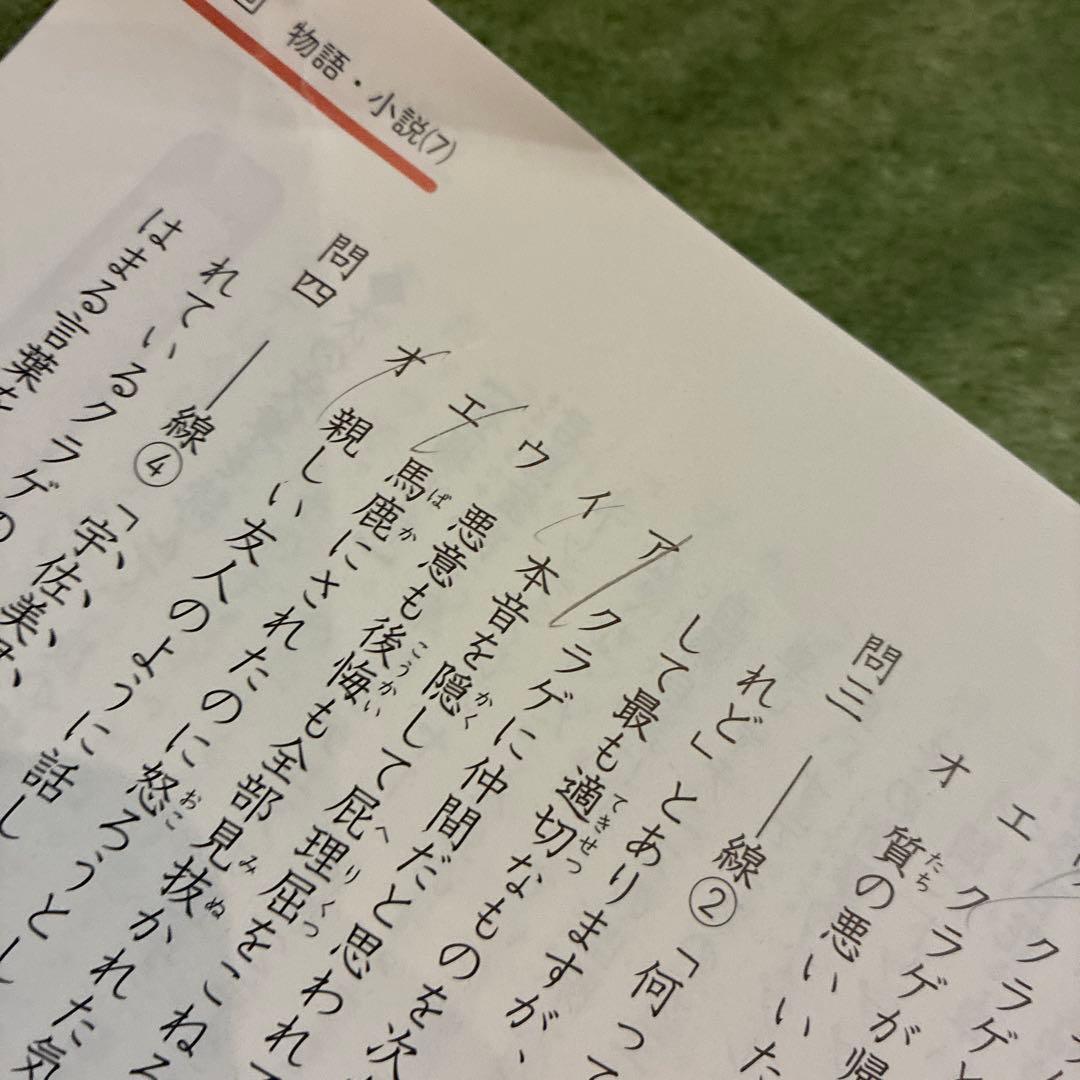 物語・小説(7)
クラゲと
エ クラゲが帰
オ 質の悪いいた
たち
問三 ――線②「何って
れど」とありますが、
して最も適切なものを次
てきせつ
ア クラゲに仲間だと思われて
イ 本音を隠して屁理屈をこねる
かく へ りくつ
ウ 悪意も後悔も全部見抜かれた気
こうかい み ぬ
エ 馬鹿にされたのに怒ろうとし
ばか おこ
オ 親しい友人のように話し
問四 ――線④「宇佐美
れているクラゲの
はまる言葉を